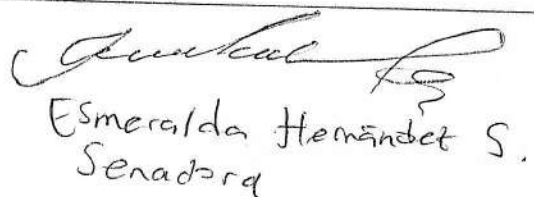 Esmeralda Hernández S.
Senadora